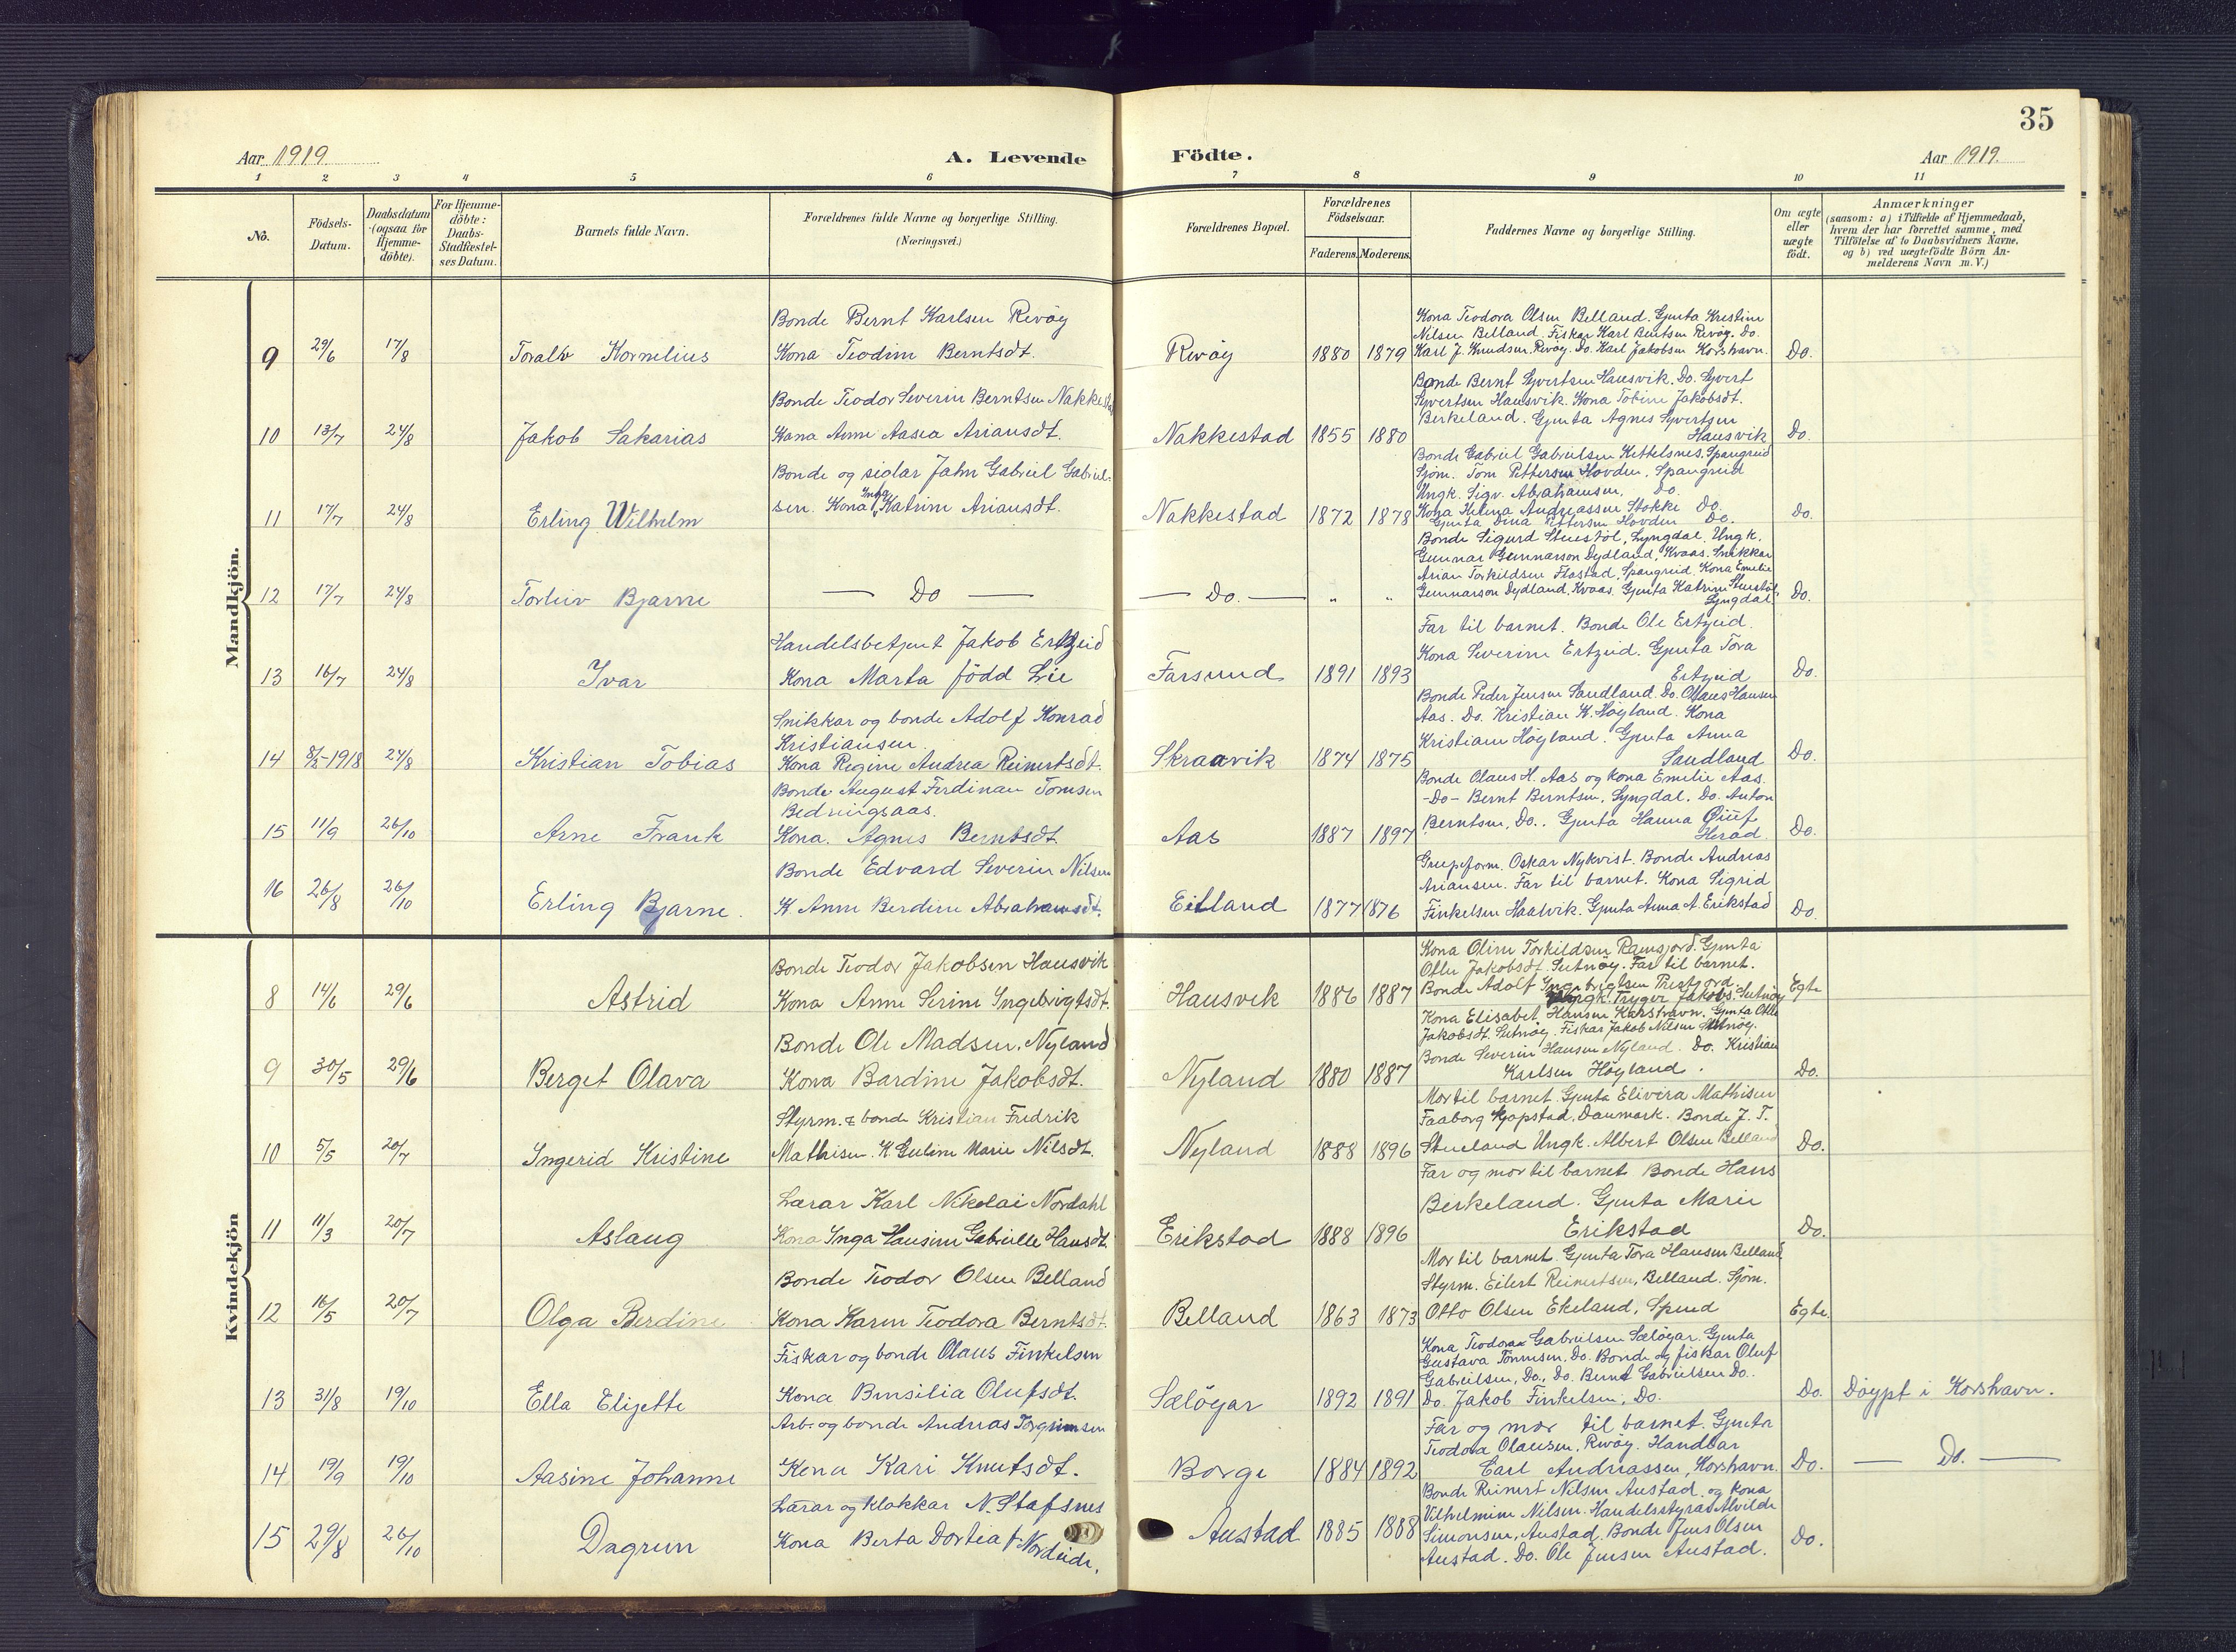 35
Aar 1919.
A. Levende
Födte.
Aar 1919.
1 2 3 4 5 6 7 8 9 10 11
No.
Födsels-
Datum.
Daabsdatum
(ogsaa för
Hjemme-
döbte).
For Hjemme-
döbte:
Daabs-
Stadfæstel-
ses Datum.
Barnets fulde Navn.
Forældrenes fulde Navne og borgerlige Stilling.
(Næringsvei.)
Forældrenes Bopæl.
Forældrenes
Födselsaar.
Faderens. Moderens.
Faddernes Navne og borgerlige Stilling.
Om ægte
eller
uægte
födt.
Anmærkninger
(saasom: a) i Tilfælde af Hjemmedaab,
hvem der har forrettet samme, med
Tilföielse af to Daabsvidners Navne,
og b) ved uægtefödte Börn An-
melderens Navn m. V.)
Mandkjön.
9 29/6 17/8 Toralv Kornelius
Bonde Bernt Karlsen Revöy
Kona Teodine Berntsdt.
Revöy 1880 1879
Kona Teodora Olsen Belland. Gjenta Kristine
Nilsen Belland. Fiskar Karl Berntsen Revöy. Do.
Karl J. Knudsen. Revöy. Do. Karl Jakobsen Korshavn.
Do.
10 13/7 24/8 Jakob Sakarias
Bonde Teodor Severin Berntsen Nakkestad
Kona Anne Aasea Ariansdt.
Nakkestad 1855 1880
Bonde Bernt Syvertsen Hausvik. Do. Syvert
Syvertsen Hausvik. Kona Tobine Jakobsdt.
Birkeland. Gjenta Agnes Syvertsen
Hausvik
Do.
11 17/7 24/8 Erling Wilhelm
Bonde og siglar Jahn Gabriel Gabriel-
sen. Kona Inga Katrine Ariansdt.
Nakkestad 1872 1878
Bonde Gabriel Gabrielsen Kettelsnes. Spangreid
Sjöm. Tom Pettersen Hovden, Spangreid
Ungk. Sigv. Abrahamsen, Do.
Kona Helena Andreassen Stokke Do.
Gjenta Dina Pettersen Hovden Do.
Do.
12 17/7 24/8 Torleiv Bjarne
— Do —
— Do. — " "
Bonde Sigurd Stuestöl, Lyngdal. Ungk.
Gunnar Gunnarson Dydland, Kvaas. Snikkar
Arian Torkildsen Flastad, Spangreid. Kona Emelie
Gunnarson Dydland. Kvaas. Gjenta Katrine Stuestöl,
Lyngdal
Do.
13 16/7 24/8 Ivar
Handelsbetjent Jakob Ertzeid
Kona Marta född Lie
Farsund 1891 1893
Far til barnet. Bonde Ole Ertzeid.
Kona Severine Ertzeid. Gjenta Tora
Ertzeid
Do.
14 8/2-1918 24/8 Kristian Tobias
Snikkar og bonde Adolf Konrad
Kristiansen.
Kona Regine Andrea Reinertsdt.
Skraavik 1874 1875
Bonde Peder Jensen Sandland. Do. Olaus Hansen
Aas. Do. Kristian K. Höyland. Kona
Kristiane Höyland. Gjenta Anna
Sandland
Do.
15 11/9 26/10 Arne Frank
Bonde August Ferdinan Tomsen
Bedringsaas.
Kona. Agnes Berntsdt.
Aas 1887 1897
Bonde Olaus H. Aas og kona Emelie Aas.
-Do- Bernt Berntsen, Lyngdal. Do. Anton
Berntsen, Do.. Gjenta Hanna
Herad.
Do.
16 26/8 26/10 Erling Bjarne.
Bonde Edvard Severin Nilsen
K. Anne Berdine Abrahamsdt.
Eitland 1877 1876
Oskar Nykvist. Bonde Andreas
Ariansen. Far til barnet. Kona Sigrid
Finkelsen Haalvik. Gjenta Anna A. Erikstad
Do.
Kvindekjön
8 14/6 29/6 Astrid
Bonde Teodor Jakobsen Hausvik
Kona Anne Serine Ingebrigtsdt.
Hausvik 1886 1887
Kona Oline Torkildsen Ramsjord. Gjenta
Otlie Jakobsdt. Sutnöy. Far til barnet.
Bonde Adolf Ingebrigtsen Prestjord.
Ungk. Trygve Jakobs. Sutnöy
Egte
9 30/5 29/6 Berget Olava
Bonde Ole Madsen. Nyland
Kona Bardine Jakobsdt.
Nyland 1880 1887
Kona Elisabet Hansen Karshavn. Gjenta Otlie
Jakobsdt. Sutnöy. Fiskar Jakob Nilsen Sutnöy.
Bonde Severin Hansen Nyland. Do. Kristian
Karlsen Höyland.
Do.
10 5/5 20/7 Ingerid Kristine
Styrm. & bonde Kristian Fredrik
Mathisen. K. Guline Marie Nilsdt.
Nyland 1888 1896
Mor til barnet. Gjenta Elivera Mathisen
Faaborg kjöpstad, Danmark. Bonde J. T.
Stueland Ungk. Albert Olsen Belland
Do.
11 11/3 20/7 Aslaug
Lærar Karl Nikolai Nordahl
Kona Inga Hansine Gabrielle Hansdt.
Erikstad 1888 1896
Far og mor til barnet Bonde Hans
Birkeland. Gjenta Marie
Erikstad
Do.
12 16/5 20/7 Olga Berdine
Bonde Teodor Olsen Belland
Kona Karen Teodora Berntsdt.
Belland 1863 1873
Mor til barnet. Gjenta Tora Hansen Belland
Styrm. Eilert Reinertsen, Belland. Sjöm.
Otto Olsen Ekeland, Spind
Egte.
13 31/8 19/10 Ella Elijette
Fiskar og bonde Olaus Finkelsen
Kona Bensilia Olufsdt.
Sælöyar 1892 1891
Kona Teodora Gabrielsen Sælöyar. Gjenta
Gustava Tönnesen, Do. Bonde og fiskar Oluf
Gabrielsen, Do., Do. Bernt Gabrielsen Do..
Do. Jakob Finkelsen, Do.
Do. Döypt i Korshavn.
14 19/9 19/10 Aasine Johanne
Arb. og bonde Andreas Torgrimsen
Kona Kari Knutsdt.
Borge 1884 1892
Far og mor til barnet. Gjenta
Teodora Olausen, Revöy. Handlar
Carl Andreassen, Korshavn.
Do. — Do. —
15 29/8 26/10 Dagrun
Lærar og klokkar N. Stafsnes
Kona Berta Dortea f. Nordeide.
Austad 1885 1888
Bonde Reinert Nilsen Austad. og kona
Vilhelmine Nilsen. Handelsstyrar Alvilde
Simonsen, Austad. Bonde Jens Olsen
Austad. Do. Ole Jensen Austad.
Do.